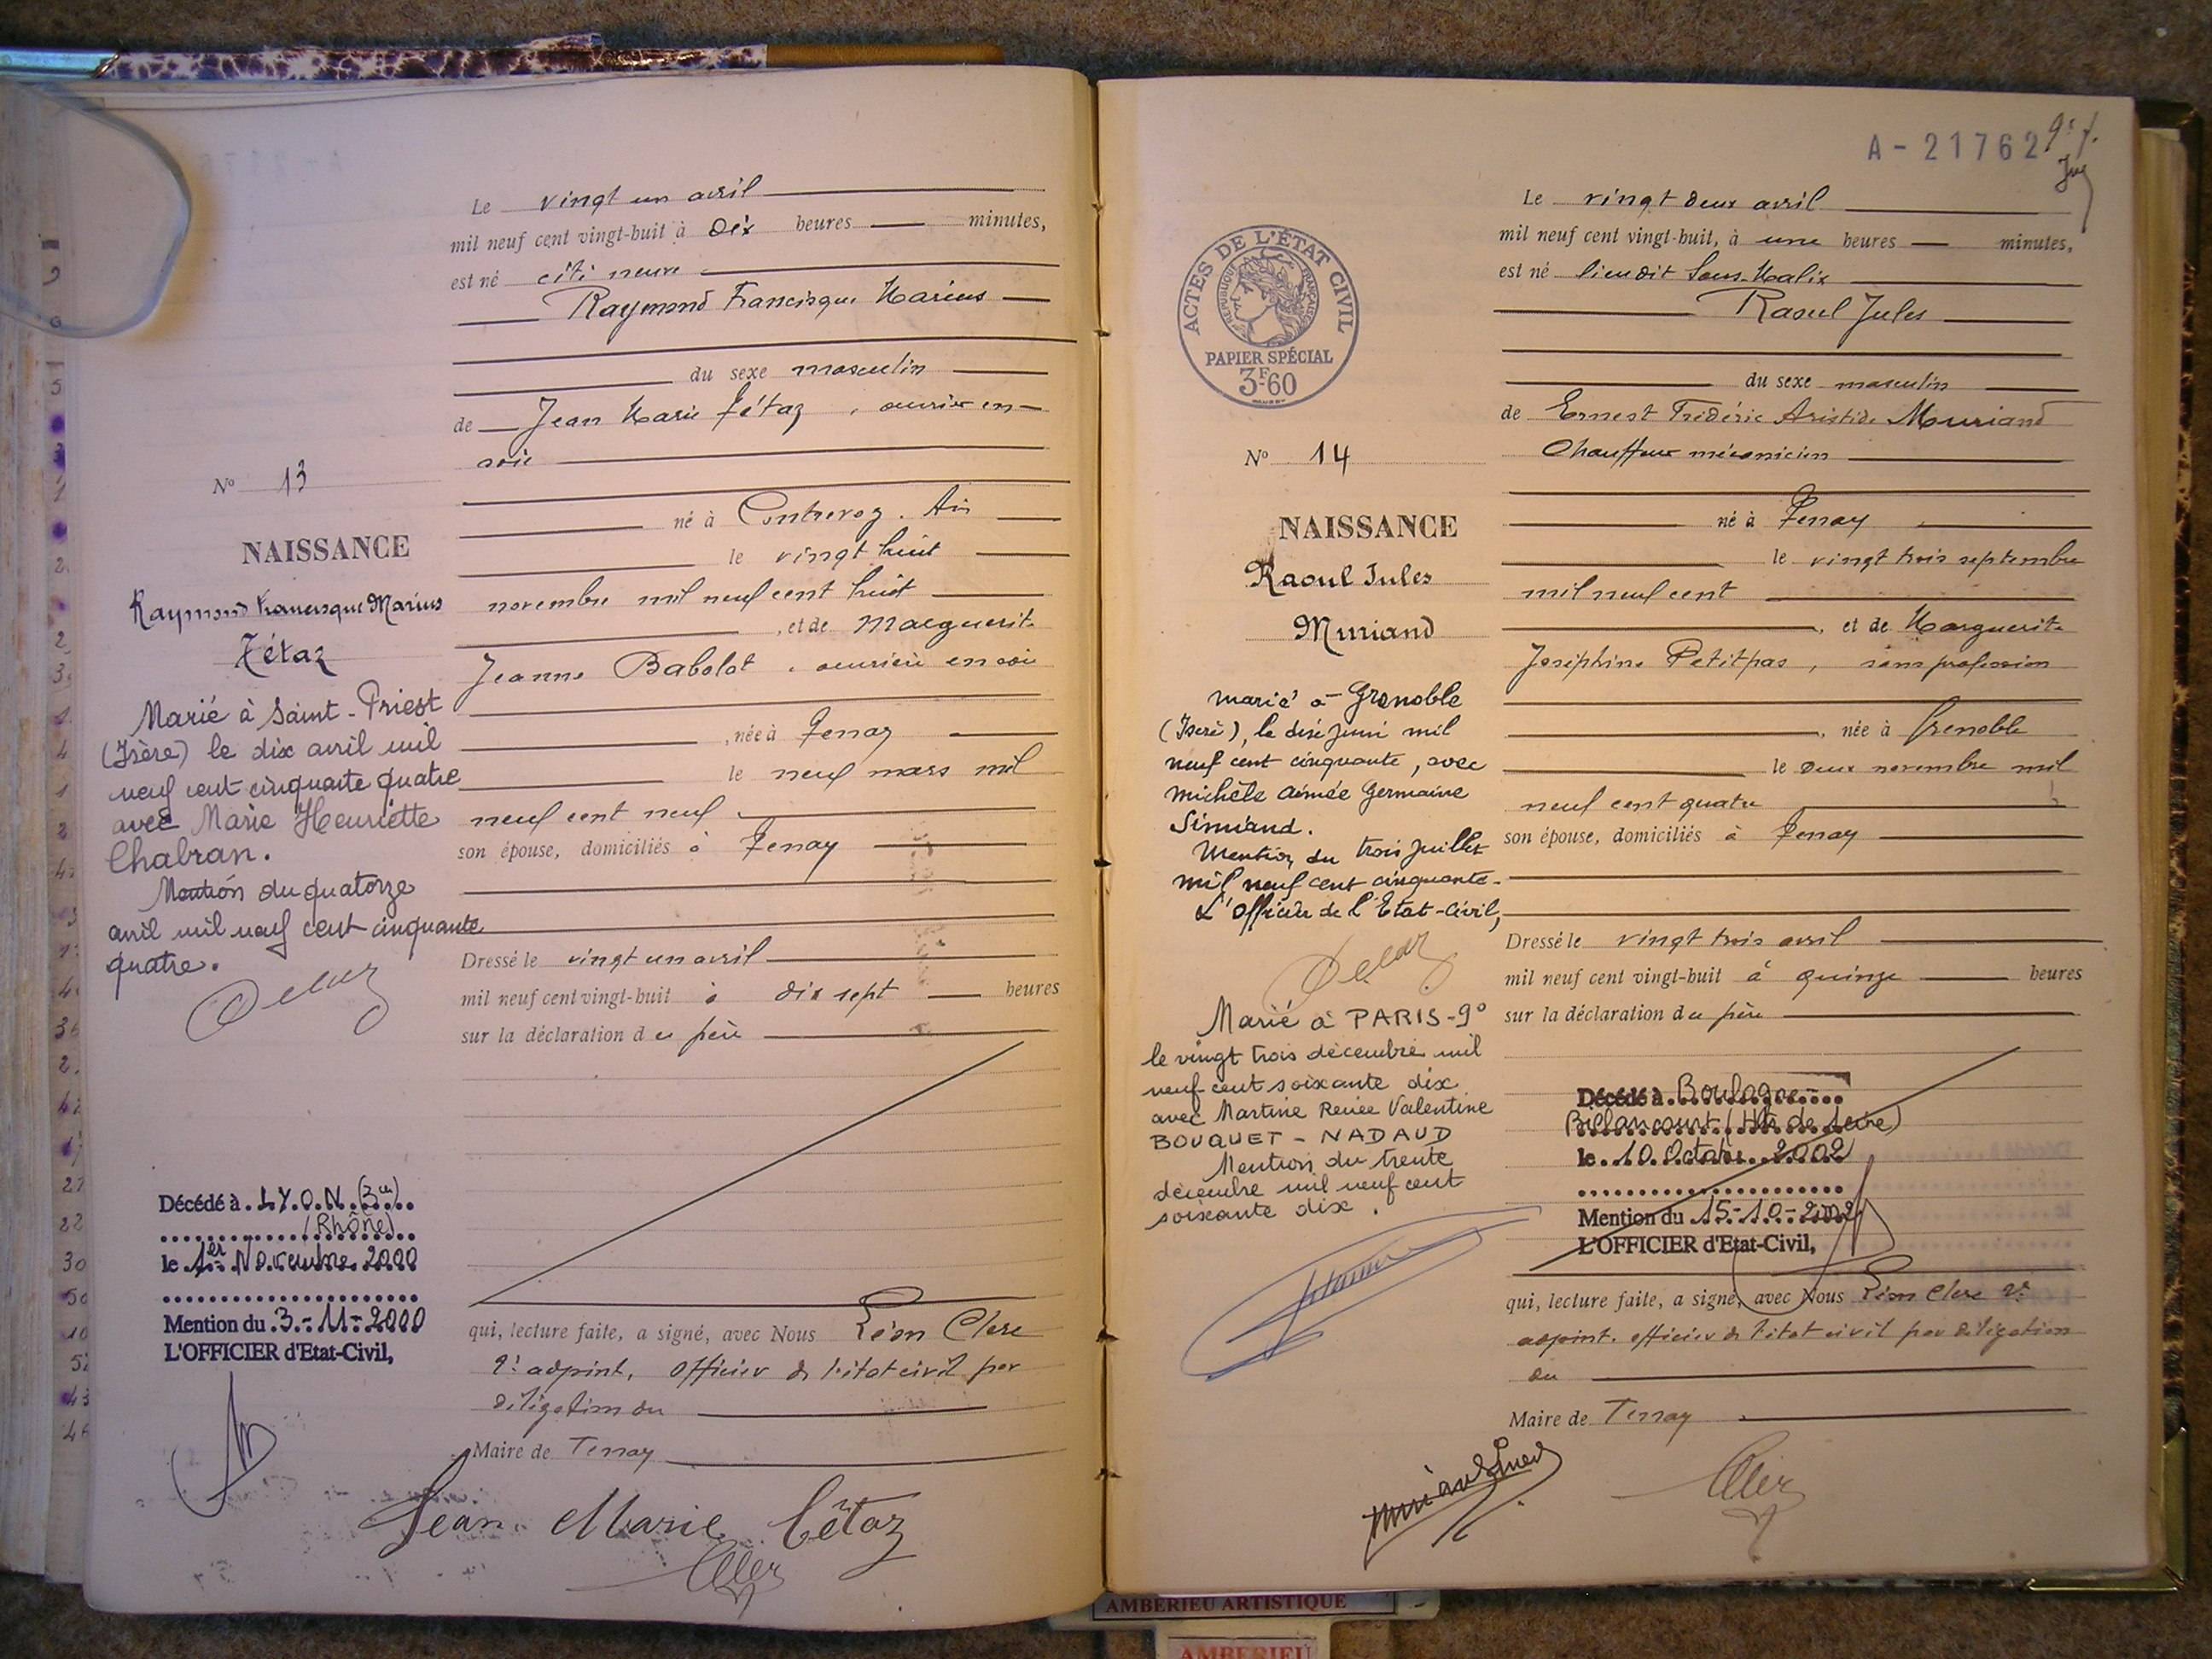 Le vingt un avril
mil neuf cent vingt-huit à dix heures — minutes,
est né cité neuve
Raymond Francisque Marius
du sexe masculin
de Jean Marie Tétaz, ouvrier en
soie
né à Contrevoz. Ain
le vingt huit
novembre mil neuf cent huit
, et de Marguerite
Jeanne Babolat, ouvrière en soie
, née à Tenay
le neuf mars mil
neuf cent neuf
son épouse, domiciliés à Tenay
Dressé le vingt un avril
mil neuf cent vingt-huit à dix sept — heures
sur la déclaration du père
qui, lecture faite, a signé, avec Nous Léon Clerc
2e adjoint, officier de l'état civil par
délégation du
Maire de Tenay
Jean Marie Tétaz
No 13
NAISSANCE
Raymond Francisque Marius
Tétaz
Marié à Saint-Priest
(Isère) le dix avril mil
neuf cent cinquante quatre
avec Marie Henriette
Chabran.
Mention du quatorze
avril mil neuf cent cinquante
quatre.
Décédé à LYON (3e)
(Rhône)
le 1er Novembre 2000
Mention du 3-11-2000
L'OFFICIER d'Etat-Civil,
A-21762
ACTES DE L'ÉTAT CIVIL
RÉPUBLIQUE FRANÇAISE
PAPIER SPÉCIAL
3F60
No 14
NAISSANCE
Raoul Jules
Muriand
marié à Grenoble
(Isère), le dix juin mil
neuf cent cinquante, avec
Michèle Aimée Germaine
Simiand.
Mention du trois juillet
mil neuf cent cinquante.
L'Officier de l'Etat-Civil,
Marié à PARIS-9°
le vingt trois décembre mil
neuf cent soixante dix
avec Martine Renée Valentine
BOUQUET - NADAUD
Mention du trente
décembre mil neuf cent
soixante dix.
Le vingt deux avril
mil neuf cent vingt-huit, à une heures — minutes,
est né lieudit Sous-Malix
Raoul Jules
du sexe masculin
de Ernest Frédéric Aristide Muriand
Chauffeur mécanicien
né à Tenay
le vingt trois septembre
mil neuf cent
, et de Marguerite
Joséphine Petitpas, sans profession
, née à Grenoble
le deux novembre mil
neuf cent quatre
son épouse, domiciliés à Tenay
Dressé le vingt trois avril
mil neuf cent vingt-huit à quinze — heures
sur la déclaration du père
Décédé à Boulogne-
Billancourt (Hts de Seine)
le 10 Octobre 2002
Mention du 15-10-2002
L'OFFICIER d'Etat-Civil,
qui, lecture faite, a signé, avec Nous Léon Clerc 2e
adjoint, officier de l'état civil par délégation
du
Maire de Tenay
AMBERIEU ARTISTIQUE
AMBERIEU